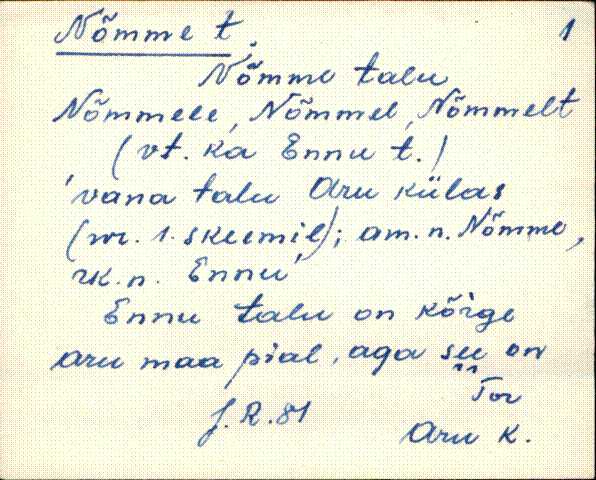 Nõmme t. 1
Nõmme talu
Nõmmele, Nõmmel, Nõmmelt
(vt. ka Ennu t.)
'vana talu Aru külas
(nr. 1. skeemil); am. n. Nõmme,
rk. n. Ennu'
Ennu talu on kõige
aru maa pial, aga see on
Tor
J. R. 81
Aru k.